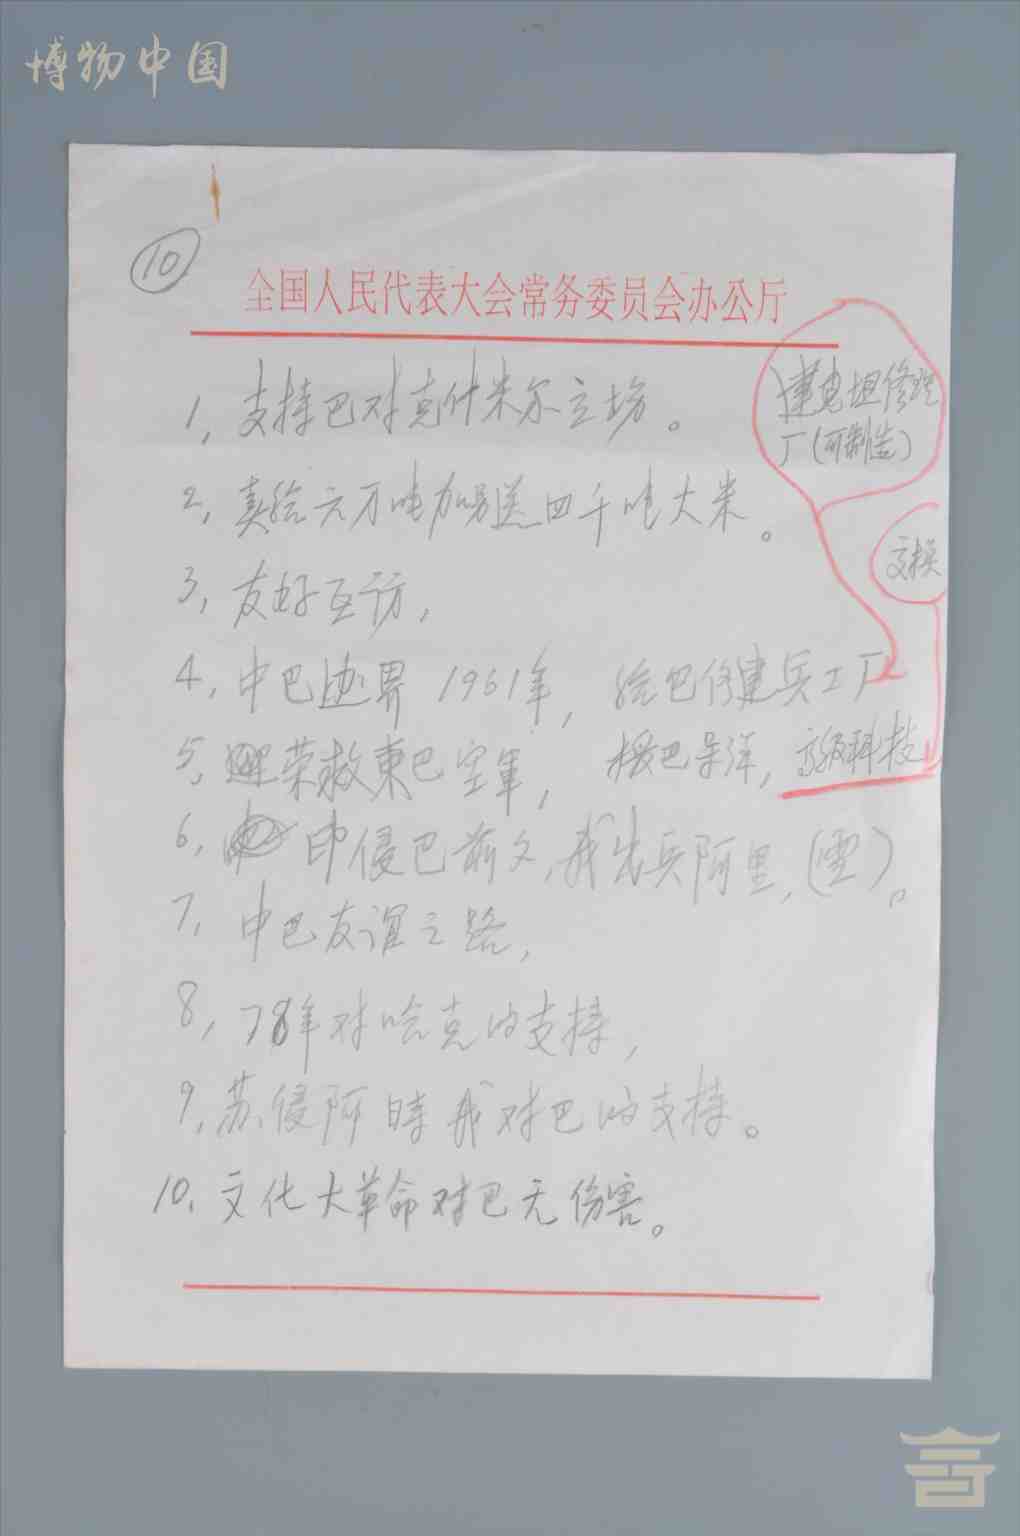 博物中国
⑩
全国人民代表大会常务委员会办公厅
建克坦修理
厂(可制造)
1, 支持巴对克什米尔立场。
2, 卖给六万吨加另送四千吨大米。
交换
3, 友好互访,
4, 中巴边界 1961年, 给巴修建兵工厂
5, 荣救東巴空軍, 援巴导洋, 高级科技
6, 印侵巴前夕, 我出兵阿里, (雪)。
7, 中巴友谊之路,
8, 78年对哈克的支持,
9, 苏侵阿時我对巴的支持。
10, 文化大革命对巴无伤害。